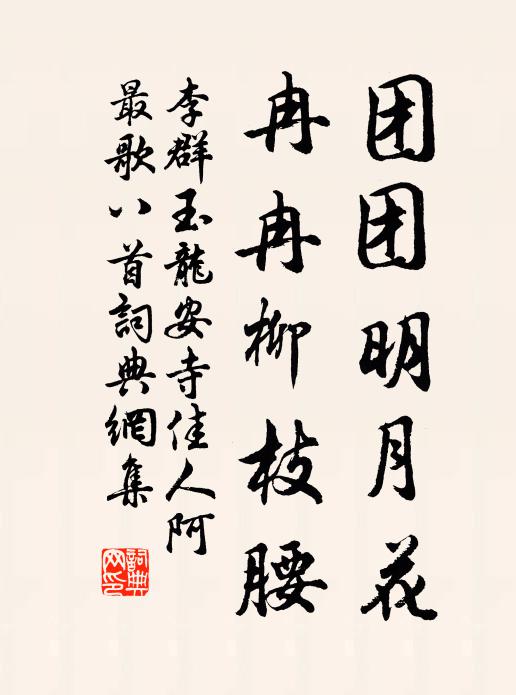 团团明月花
冉冉柳枝腰
李群玉龍安寺佳人阿
最歌八首詞典網集
詞典
网印